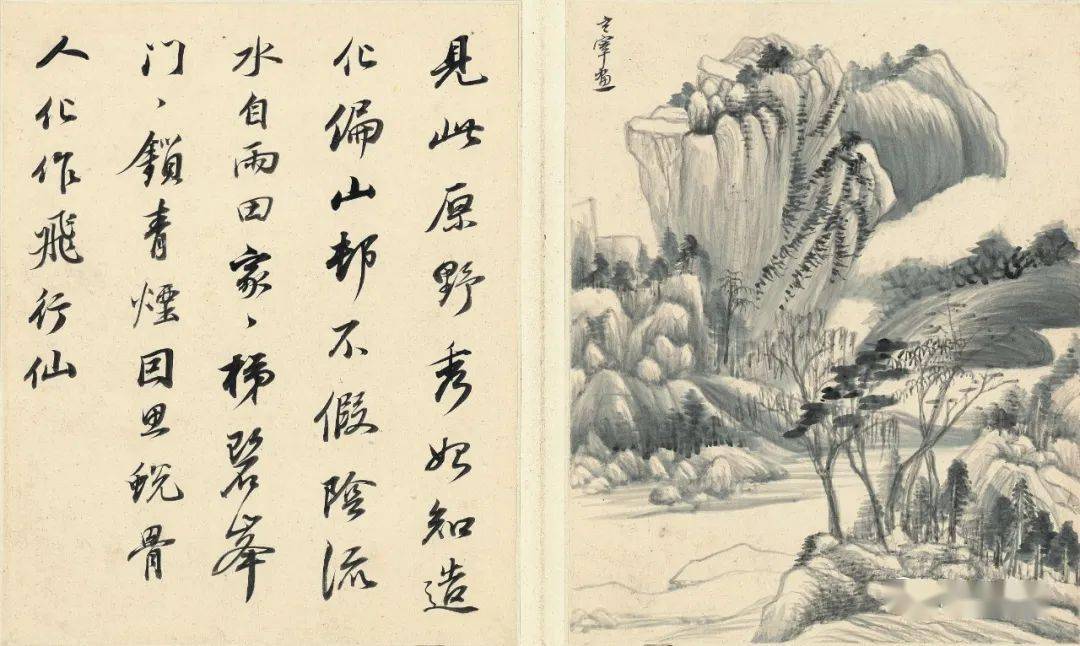 玄宰畫
見此原野秀始知造
化偏山邨不假陰流
水自雨田家、梯碧峯
门、鎖青煙因思蛻骨
人化作飛行仙